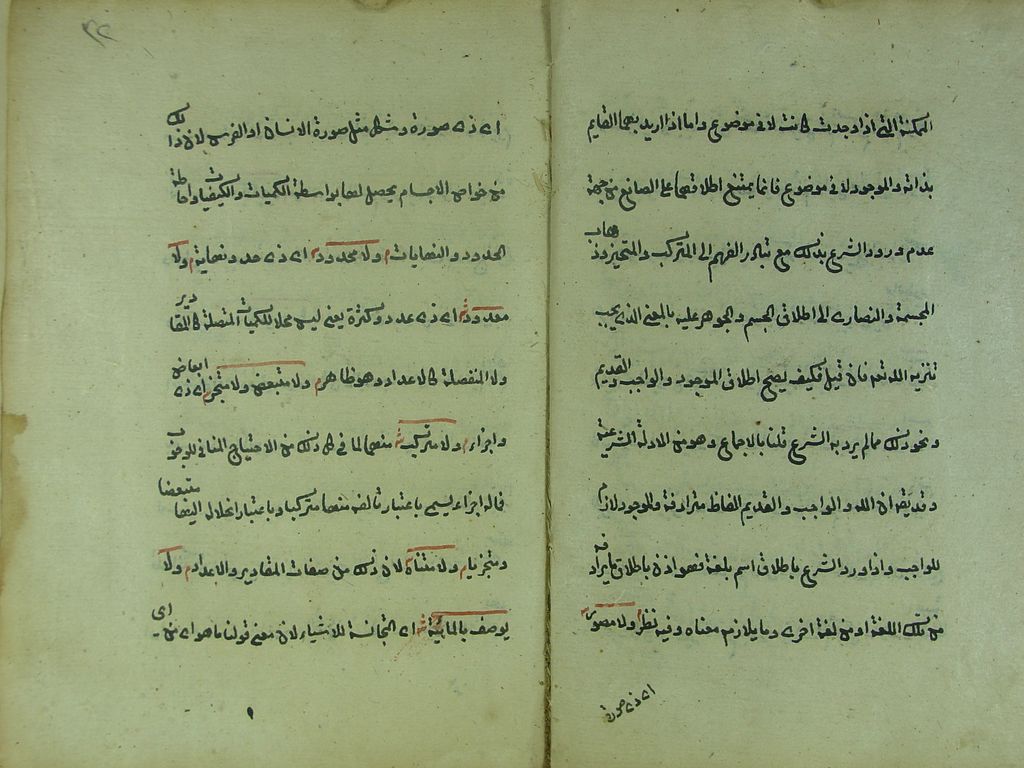 الممكنة التي اذا وجدت كانت لا في موضوع واما اذا اريد بهما القايم
بذاته والموجود لا في موضوع فانما يمتنع اطلاقهما على الصانع من جهة
عدم ورود الشرع بذلك مع تبادر الفهم الى المتركب والمتحيز وذهاب
المجسمة والنصارى الى اطلاق الجسم والجوهر عليه بالمعنى الذي يجب
تنزيه الله تعه فان قيل فكيف يصح اطلاق الموجود والواجب والقديم
ونحو ذلك مما لم يرد به الشرع قلنا بالاجماع وهو من الادلة الشرعية
وقد يقه ان الله والواجب والقديم الفاظ مترادفة والموجود لازم
للواجب واذا ورد الشرع باطلاق اسم بلغة فهو اذن باطلاق ما يرادفه
من تلك اللغة او من لغة اخرى وما يلازم معناه وفيه نظر ولا مصور
اي ذي صورة
٣٢
اي ذي صورة وشكل مثل صورة الانسان او الفرس لان ذلك
من خواص الاجسام يحصل لها بواسطة الكميات والكيفيات واحاطة
الحدود والنهايات م ولا محدود ش اي ذي حد ونهاية م ولا
معدود ش اي ذي عدد وكثرة يعني ليس محلا للكميات المتصلة كالمقادير
ولا المنفصلة كالاعداد وهو ظاهر م ولا متبعض ولا متجز اي ذي ابعاض
واجزاء م ولا متركب ش منهما لما في كل ذلك من الاحتياج المنافي للوجوب
فما له اجزاء يسمى باعتبار تالفه منها متركبا وباعتبار انحلاله اليها متبعضا
ومتجزيا م ولا متناه لان ذلك من صفات المقادير والاعداد م ولا
يوصف بالمائية ش اي المجانسة للاشياء لان معنى قولنا ما هو اي من اي